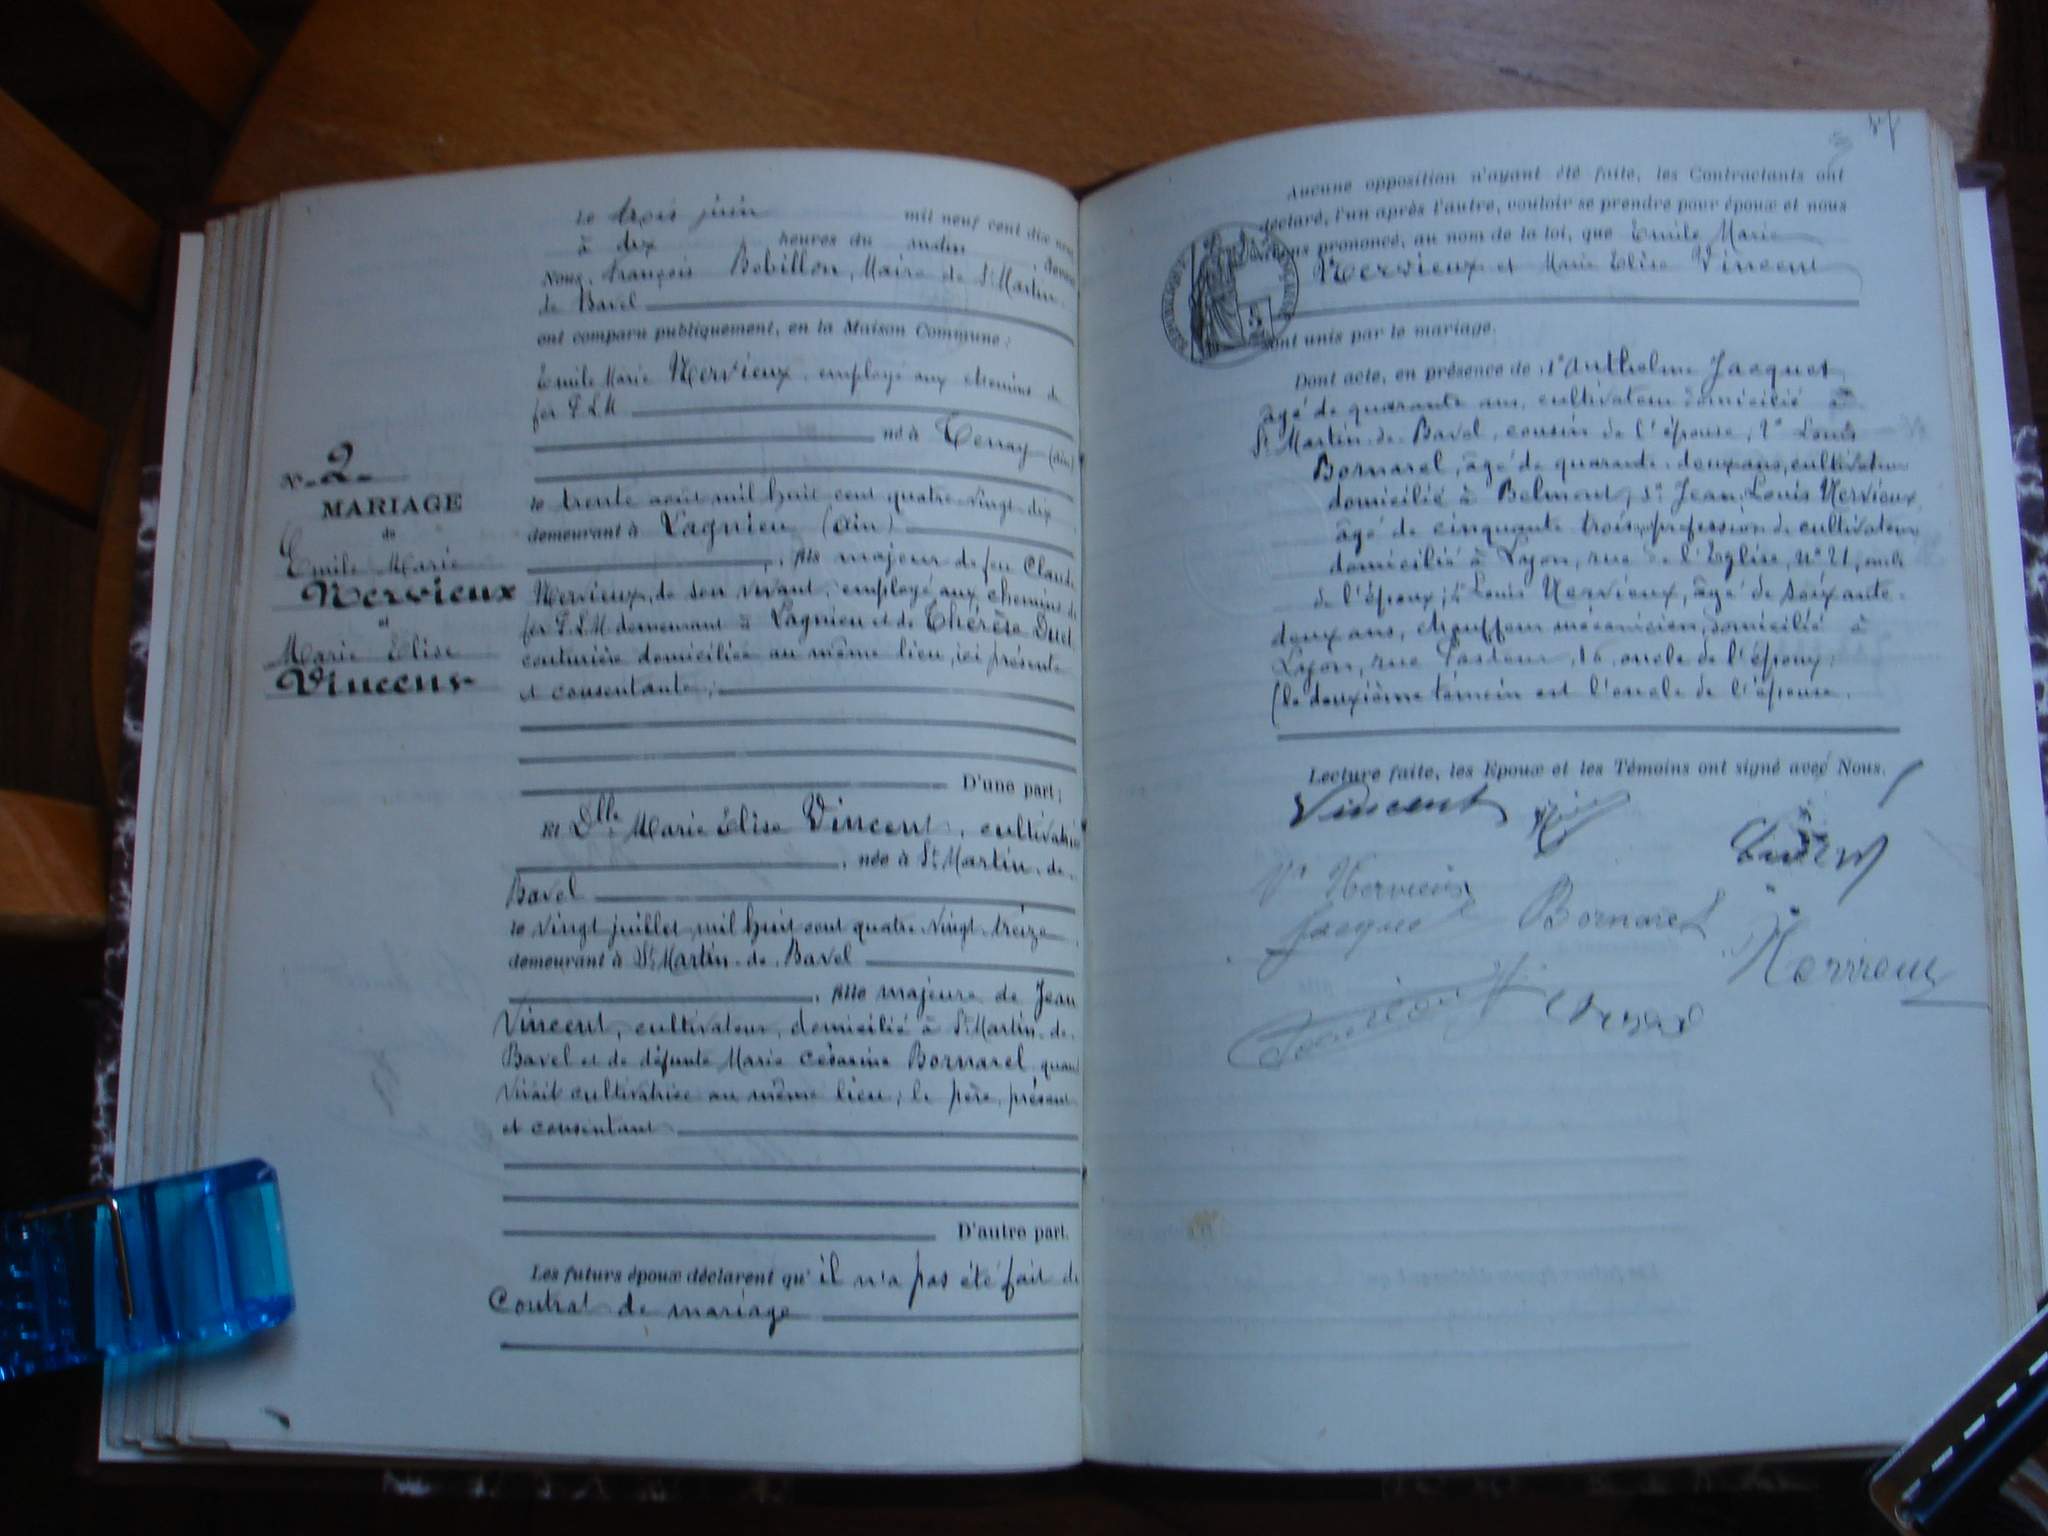 le trois juin mil neuf cent dix neuf
à dix heures du matin devant
Nous, François Bobillon, Maire de St Martin
de Bavel
ont comparu publiquement, en la Maison Commune :
Emile Marie Nervieux, employé aux chemins de
fer P.L.M
né à Tenay (Ain)
le trente août mil huit cent quatre-vingt-dix
demeurant à Lagnieu (Ain)
, fils majeur de feu Claude
Nervieux, de son vivant, employé aux chemins de
fer P.L.M demeurant à Lagnieu et de Thérèse
couturière domiciliée au même lieu, ici présente
et consentante ;
D'une part ;
Et Dlle Marie Elise Vincent, cultivatrice
, née à St Martin-de-
Bavel
le vingt juillet mil huit cent quatre-vingt-treize
demeurant à St Martin-de-Bavel
, fille majeure de Jean
Vincent, cultivateur, domicilié à St Martin-de-
Bavel et de défunte Marie Césarine Bornarel quand
vivait cultivatrice au même lieu ; le père, présent
et consentant
D'autre part.
Les futurs époux déclarent qu'il n'a pas été fait de
Contrat de mariage
N° 2
MARIAGE
de
Emile Marie
Nervieux
et
Marie Elise
Vincent
Aucune opposition n'ayant été faite, les Contractants ont
déclaré, l'un après l'autre, vouloir se prendre pour époux et nous
avons prononcé, au nom de la loi, que Emile Marie
Nervieux et Marie Elise Vincent
sont unis par le mariage.
Dont acte, en présence de : 1° Anthelme Jacquet
âgé de quarante ans, cultivateur domicilié à
St Martin-de-Bavel, cousin de l'épouse, 2° Louis
Bornarel, âgé de quarante-deux ans, cultivateur
domicilié à Belmont, 3° Jean Louis Nervieux
âgé de cinquante trois, profession de cultivateur
domicilié à Lyon, rue de l'Eglise, N° 21, oncle
de l'époux ; 4° Louis Nervieux, âgé de soixante-
deux ans, chauffeur mécanicien, domicilié à
Lyon, rue Pasteur, 16, oncle de l'époux,
(le deuxième témoin est l'oncle de l'épouse.
Lecture faite, les Epoux et les Témoins ont signé avec Nous.
Vincent
Nervieux
Jacquet Bornarel
Nervieux